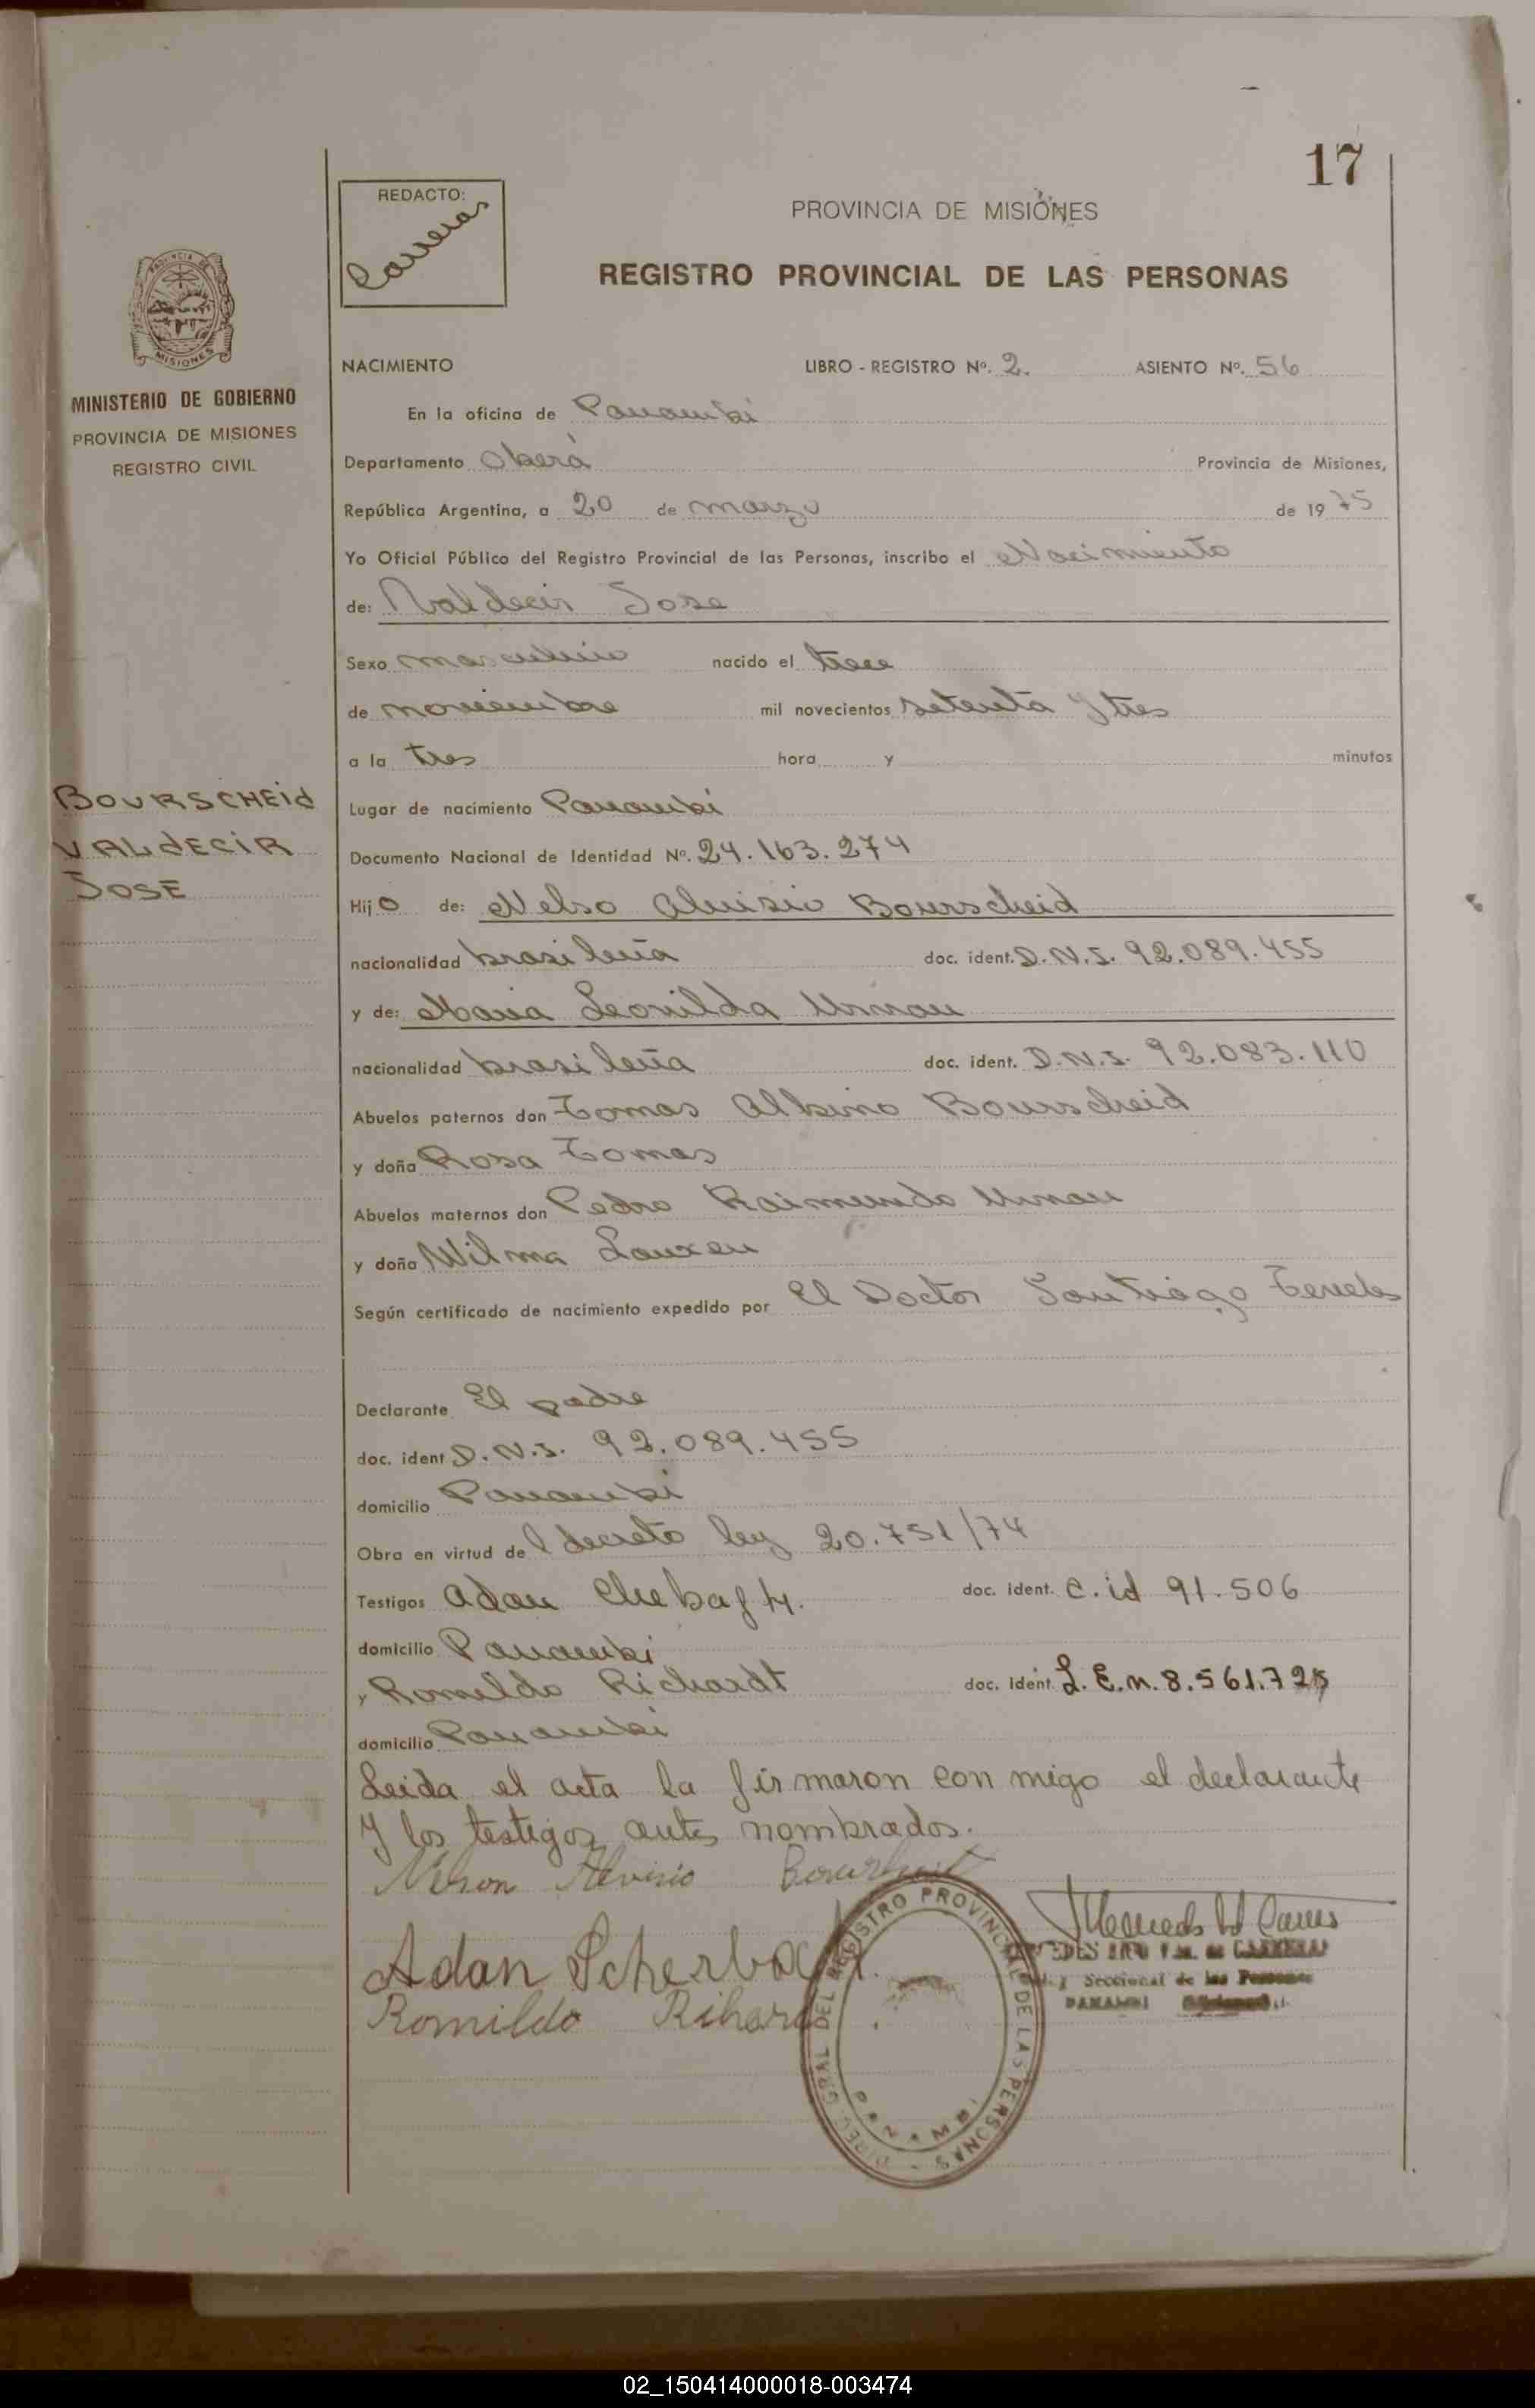 17
REDACTO:
Carreras
PROVINCIA DE MISIONES
REGISTRO PROVINCIAL DE LAS PERSONAS
PROVINCIA DE
MISIONES
MINISTERIO DE GOBIERNO
PROVINCIA DE MISIONES
REGISTRO CIVIL
NACIMIENTO LIBRO - REGISTRO Nº. 2. ASIENTO Nº. 56
En la oficina de Panambi
Departamento Oberá Provincia de Misiones,
República Argentina, a 20 de marzo de 1975
Yo Oficial Público del Registro Provincial de las Personas, inscribo el Nacimiento
de: Valdecir Jose
Sexo masculino nacido el trece
de noviembre mil novecientos setenta y tres
a la tres hora y minutos
BOURSCHEid
VALdECiR
JOSE
Lugar de nacimiento Panambi
Documento Nacional de Identidad Nº. 24.163.274
Hijo de: Nelso Aluisio Bourscheid
nacionalidad brasileña doc. ident. D.N.I. 92.089.455
y de: Maria Leonilda Urnau
nacionalidad brasileña doc. ident. D.N.I. 92.083.110
Abuelos paternos don Tomas Albino Bourscheid
y doña Rosa Tomas
Abuelos maternos don Pedro Raimundo Urnau
y doña Wilma Lauxen
Según certificado de nacimiento expedido por El Doctor Santiago
Declarante El padre
doc. ident D.N.I. 92.089.455
domicilio Panambi
Obra en virtud del decreto ley 20.751/74
Testigos Adan doc. ident. C.id 91.506
domicilio Panambi
y Romildo Richardt doc. ident. L.E.n. 8.561.725
domicilio Panambi
Leida el acta la firmaron con migo el declarante
y los testigos antes nombrados.
Nelson Alvisio
Adan
Romildo
DIREC. GRAL DEL REGISTRO PROVINCIAL DE LAS PERSONAS -
PANAMBI
de CARRERAS
Seccional de las Personas
PANAMBI
02_150414000018-003474